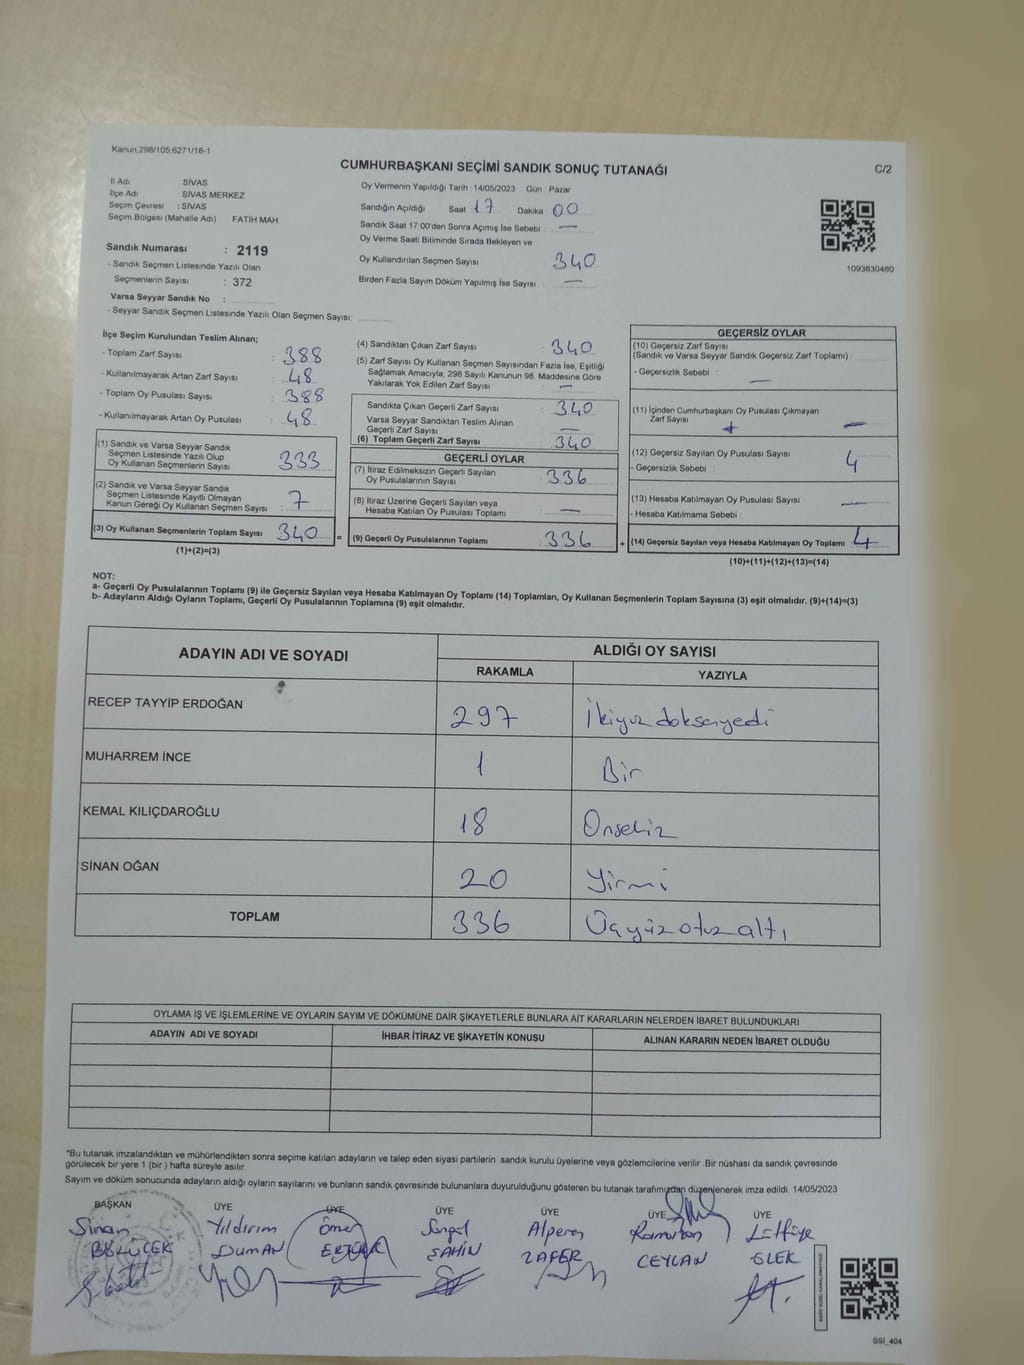 Kanun;298/105;6271/18-1
CUMHURBAŞKANI SEÇİMİ SANDIK SONUÇ TUTANAĞI
C/2
İl Adı : SİVAS
İlçe Adı : SİVAS MERKEZ
Seçim Çevresi : SİVAS
Seçim Bölgesi (Mahalle Adı) : FATİH MAH.
Sandık Numarası : 2119
- Sandık Seçmen Listesinde Yazılı Olan
Seçmenlerin Sayısı : 372
Varsa Seyyar Sandık No :
- Seyyar Sandık Seçmen Listesinde Yazılı Olan Seçmen Sayısı:
Oy Vermenin Yapıldığı Tarih : 14/05/2023 Gün : Pazar
Sandığın Açıldığı Saat 17 Dakika : 00
Sandık Saat 17:00'den Sonra Açımış İse Sebebi : —
Oy Verme Saati Bitiminde Sırada Bekleyen ve
Oy Kullandırılan Seçmen Sayısı : 340
Birden Fazla Sayım Döküm Yapılmış İse Sayısı : —
1093830480
İlçe Seçim Kurulundan Teslim Alınan;
- Toplam Zarf Sayısı : 388
- Kullanılmayarak Artan Zarf Sayısı : 48
- Toplam Oy Pusulası Sayısı : 388
- Kullanılmayarak Artan Oy Pusulası : 48
(1) Sandık ve Varsa Seyyar Sandık
Seçmen Listesinde Yazılı Olup
Oy Kullanan Seçmenlerin Sayısı : 333
(2) Sandık ve Varsa Seyyar Sandık
Seçmen Listesinde Kayıtlı Olmayan
Kanun Gereği Oy Kullanan Seçmen Sayısı : 7
(3) Oy Kullanan Seçmenlerin Toplam Sayısı : 340 =
(1)+(2)=(3)
(4) Sandıktan Çıkan Zarf Sayısı : 340
(5) Zarf Sayısı Oy Kullanan Seçmen Sayısından Fazla İse, Eşitliği
Sağlamak Amacıyla, 298 Sayılı Kanunun 98. Maddesine Göre
Yakılarak Yok Edilen Zarf Sayısı : —
Sandıkta Çıkan Geçerli Zarf Sayısı : 340
Varsa Seyyar Sandıktan Teslim Alınan
Geçerli Zarf Sayısı : —
(6) Toplam Geçerli Zarf Sayısı : 340
GEÇERLİ OYLAR
(7) İtiraz Edilmeksizin Geçerli Sayılan
Oy Pusulalarının Sayısı : 336
(8) İtiraz Üzerine Geçerli Sayılan veya
Hesaba Katılan Oy Pusulası Toplamı : —
(9) Geçerli Oy Pusulalarının Toplamı : 336 +
GEÇERSİZ OYLAR
(10) Geçersiz Zarf Sayısı
(Sandık ve Varsa Seyyar Sandık Geçersiz Zarf Toplamı) :
- Geçersizlik Sebebi : —
(11) İçinden Cumhurbaşkanı Oy Pusulası Çıkmayan
Zarf Sayısı : —
(12) Geçersiz Sayılan Oy Pusulası Sayısı : 4
- Geçersizlik Sebebi :
(13) Hesaba Katılmayan Oy Pusulası Sayısı : —
- Hesaba Katılmama Sebebi :
(14) Geçersiz Sayılan veya Hesaba Katılmayan Oy Toplamı : 4
(10)+(11)+(12)+(13)=(14)
NOT:
a- Geçerli Oy Pusulalarının Toplamı (9) ile Geçersiz Sayılan veya Hesaba Katılmayan Oy Toplamı (14) Toplamları, Oy Kullanan Seçmenlerin Toplam Sayısına (3) eşit olmalıdır. (9)+(14)=(3)
b- Adayların Aldığı Oyların Toplamı, Geçerli Oy Pusulalarının Toplamına (9) eşit olmalıdır.
ADAYIN ADI VE SOYADI
ALDIĞI OY SAYISI
RAKAMLA YAZIYLA
RECEP TAYYİP ERDOĞAN 297 İkiyüz doksanyedi
MUHARREM İNCE 1 Bir
KEMAL KILIÇDAROĞLU 18 Onsekiz
SİNAN OĞAN 20 Yirmi
TOPLAM 336 Üçyüz otuz altı
OYLAMA İŞ VE İŞLEMLERİNE VE OYLARIN SAYIM VE DÖKÜMÜNE DAİR ŞİKAYETLERLE BUNLARA AİT KARARLARIN NELERDEN İBARET BULUNDUKLARI
ADAYIN ADI VE SOYADI İHBAR İTİRAZ VE ŞİKAYETİN KONUSU ALINAN KARARIN NEDEN İBARET OLDUĞU
*Bu tutanak imzalandıktan ve mühürlendikten sonra seçime katılan adayların ve talep eden siyasi partilerin sandık kurulu üyelerine veya gözlemcilerine verilir. Bir nüshası da sandık çevresinde
görülecek bir yere 1 (bir ) hafta süreyle asılır.
Sayım ve döküm sonucunda adayların aldığı oyların sayılarını ve bunların sandık çevresinde bulunanlara duyurulduğunu gösteren bu tutanak tarafımızdan düzenlenerek imza edildi. 14/05/2023
BAŞKAN ÜYE ÜYE ÜYE ÜYE ÜYE ÜYE
Sinan Yıldırım Ömer Songül Alperen Ramazan Lütfiye
BÖLÜCEK DUMAN ŞAHİN ZAFER CEYLAN ELEK
SSI_404